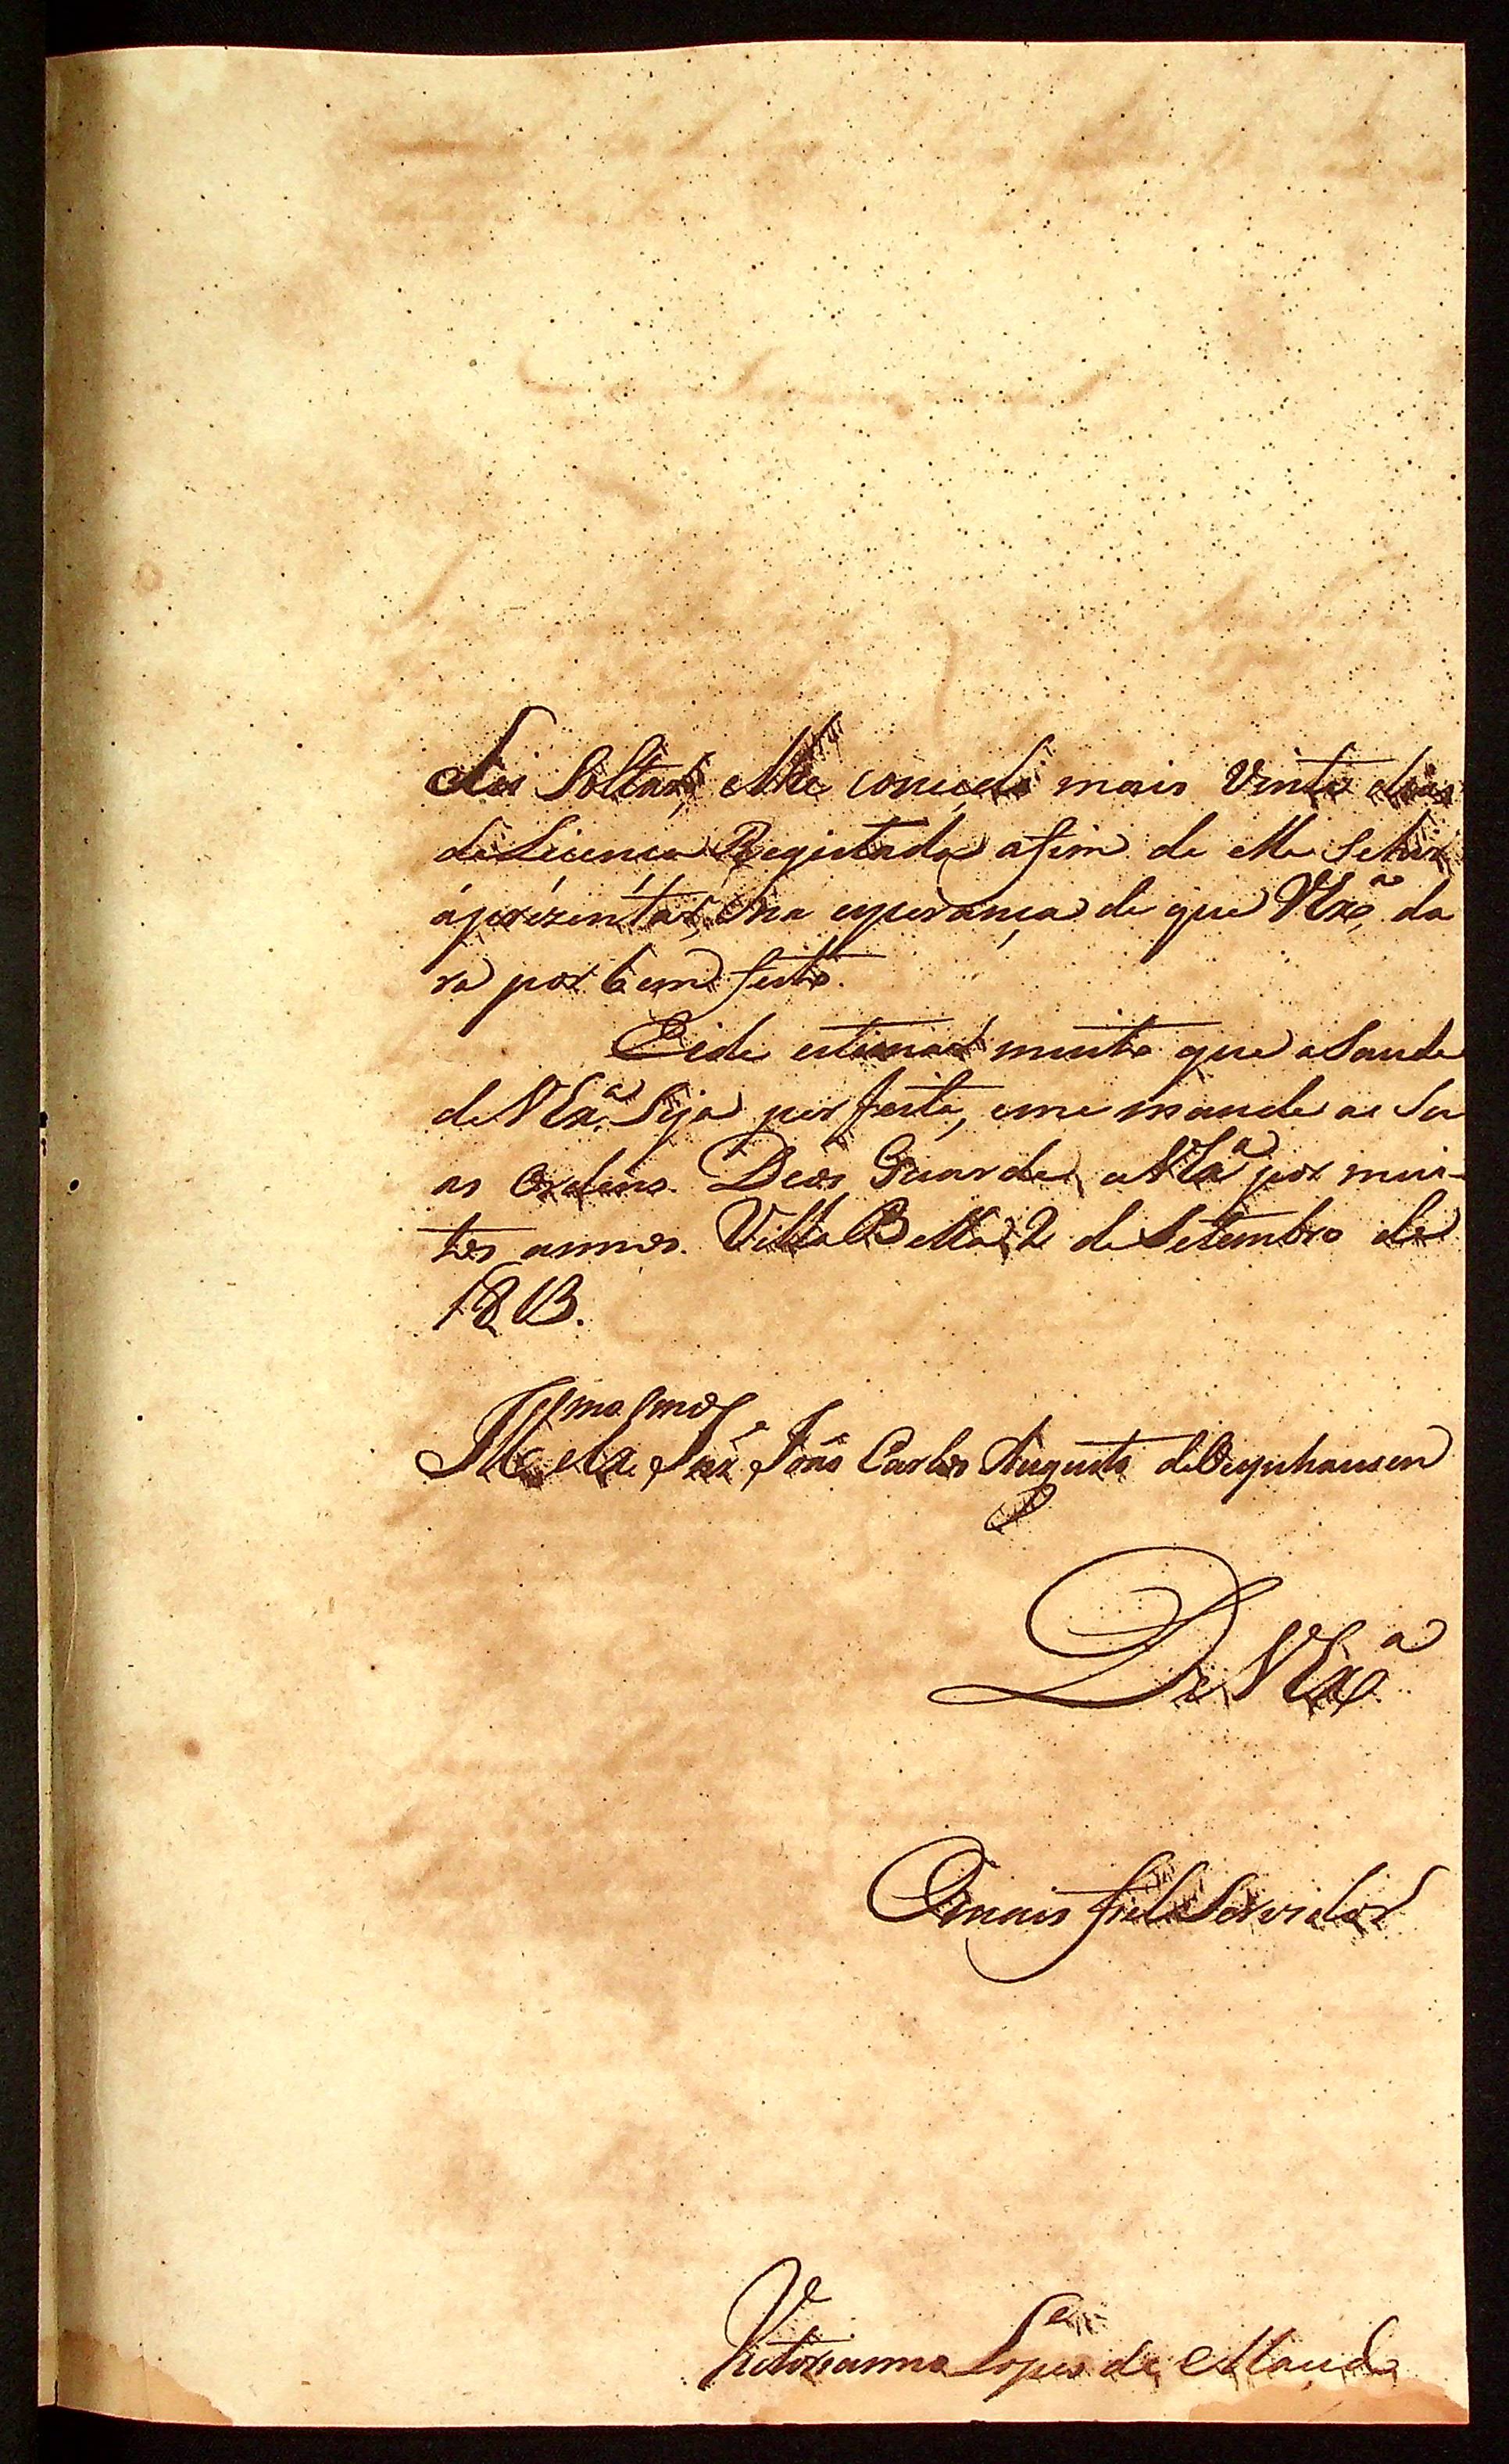 Soltar, e lhe concedi mais Vinte dias
de Licença Registada afim de elle se hir
aprezentar, na esperança de que VExª, da
ra por bem feito.
Eide estimar muito que a Saude
de VExª Seja perfeita, eme mande as Su
as Ordens. Deos Guarde a VExª por mui-
tos annos. Villa Bella 2 de Setembro de
1813.
Illmo e Exmo Snr João Carlos Augusto de Oeynhausen
De VExª
O mais fiel Servidor
Victorianno Lopes de Macedo